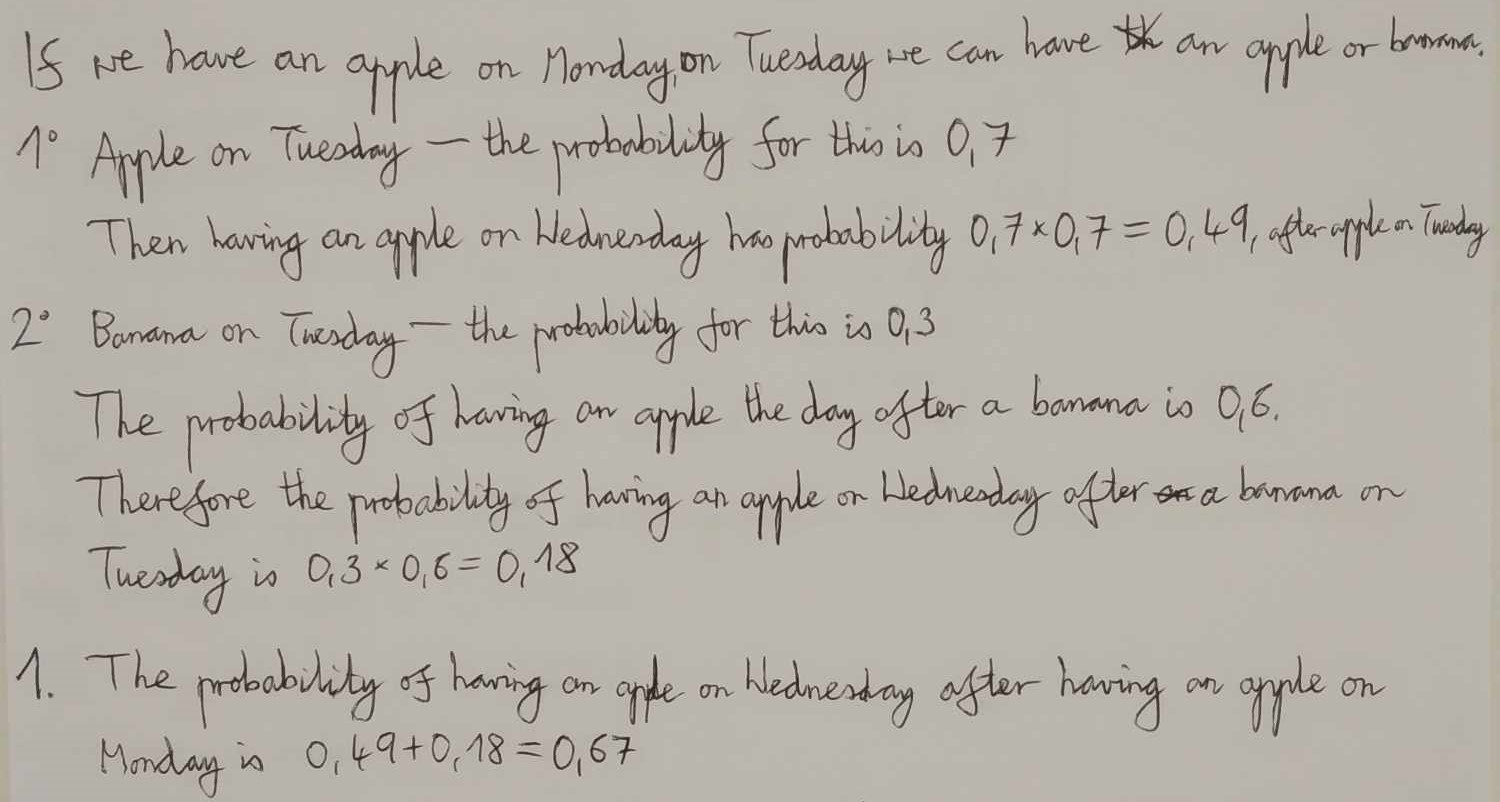 If we have an apple on Monday, on Tuesday we can have an apple or banana.
1° Apple on Tuesday — the probability for this is 0,7
Then having an apple on Wednesday has probability 0,7 × 0,7 = 0,49, after apple on Tuesday
2° Banana on Tuesday — the probability for this is 0,3
The probability of having an apple the day after a banana is 0,6.
Therefore the probability of having an apple on Wednesday after a banana on
Tuesday is 0,3 × 0,6 = 0,18
1. The probability of having an apple on Wednesday after having an apple on
Monday is 0,49 + 0,18 = 0,67